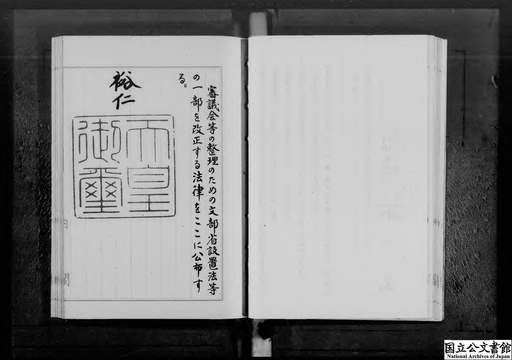 審議会等の整理のための文部省設置法等
の一部を改正する法律をここに公布す
る。
裕仁
天皇
御璽
国立公文書館
National Archives of Japan